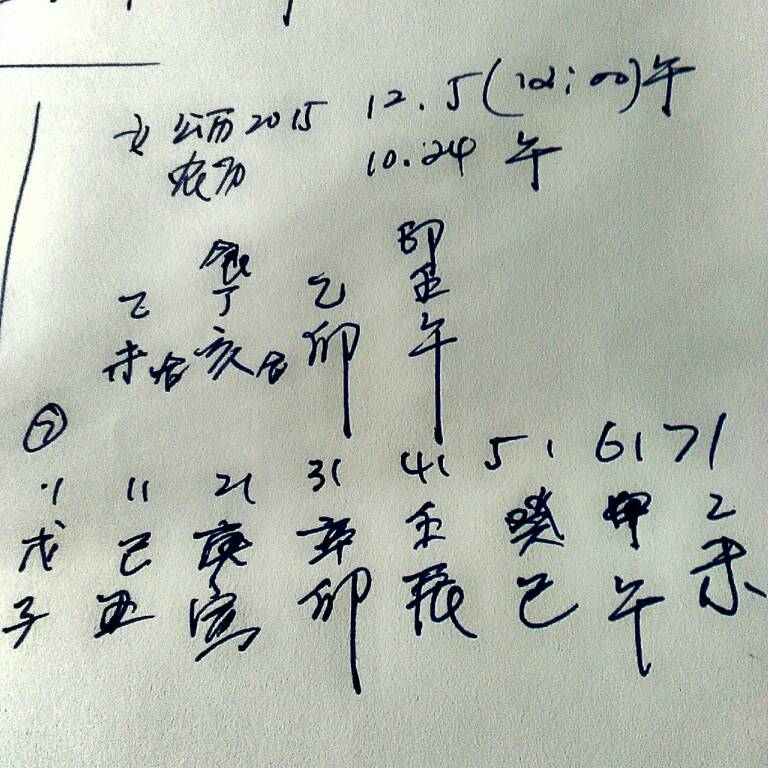 女 公历 2015 12.5(12:00)午
农历 10.24 午
食 印
乙 丁 乙 壬
未合 亥合 卯 午
②
1 11 21 31 41 51 61 71
戊 己 庚 辛 壬 癸 甲 乙
子 丑 寅 卯 辰 巳 午 未